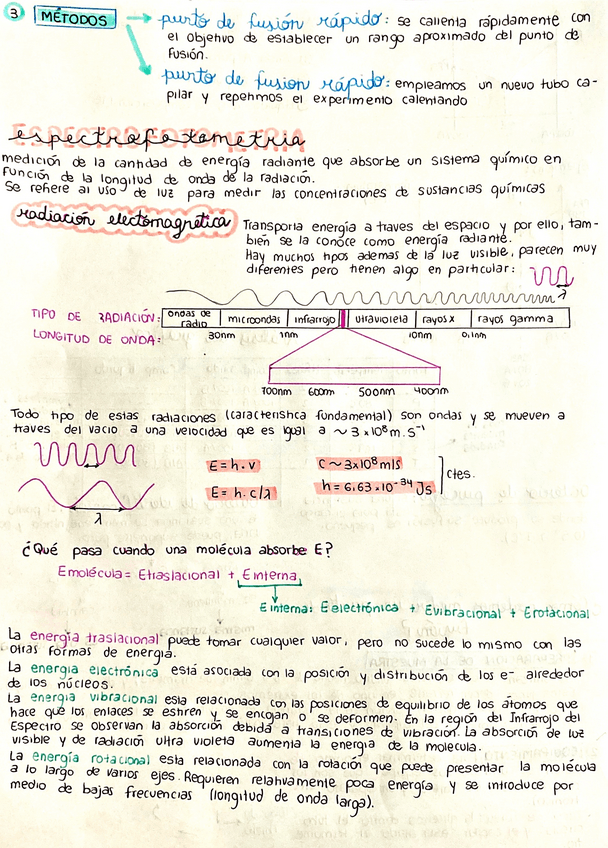 3 MÉTODOS
punto de fusión rápido: se calienta rápidamente con
el objetivo de establecer un rango aproximado del punto de
fusión.
punto de fusion rápido: empleamos un nuevo tubo ca-
pilar y repetimos el experimento calentando
espectrofotometria
medición de la cantidad de energía radiante que absorbe un sistema químico en
función de la longitud de onda de la radiación.
Se refiere al uso de luz para medir las concentraciones de sustancias químicas
radiación electomagnética
Transporta energía a traves del espacio y por ello, tam-
bién se la conoce como energía radiante.
Hay muchos tipos ademas de la luz visible, parecen muy
diferentes pero tienen algo en particular:
λ
TIPO DE RADIACIÓN: ondas de radio | microondas | infrarrojo | ultravioleta | rayos x | rayos gamma
LONGITUD DE ONDA: 30nm 1nm 10nm 0,1nm
700nm 600nm 500nm 400nm
Todo tipo de estas radiaciones (característica fundamental) son ondas y se mueven a
traves del vacio a una velocidad que es igual a ~ 3×10⁸ m.s⁻¹
E = h·v C ~ 3×10⁸ m/s
E = h·c/λ h = 6,63·10⁻³⁴ Js Ctes.
λ
¿Qué pasa cuando una molécula absorbe E?
Emolécula = Etraslacional + Einterna
Einterna: Eelectrónica + Evibracional + Erotacional
La energía traslacional puede tomar cualquier valor, pero no sucede lo mismo con las
otras formas de energía.
La energia electrónica está asociada con la posición y distribución de los e- alrededor
de los núcleos.
La energia vibracional esta relacionada con las posiciones de equilibrio de los átomos que
hace que los enlaces se estiren y se encojan o se deformen. En la región del Infrarrojo del
Espectro se observan la absorción debida a transiciones de vibración. La absorción de luz
visible y de radiación ultra violeta aumenta la energia de la molecula.
La energía rotacional esta relacionada con la rotación que puede presentar la molécula
a lo largo de varios ejes. Requieren relativamente poca energía y se introduce por
medio de bajas frecuencias (longitud de onda larga).